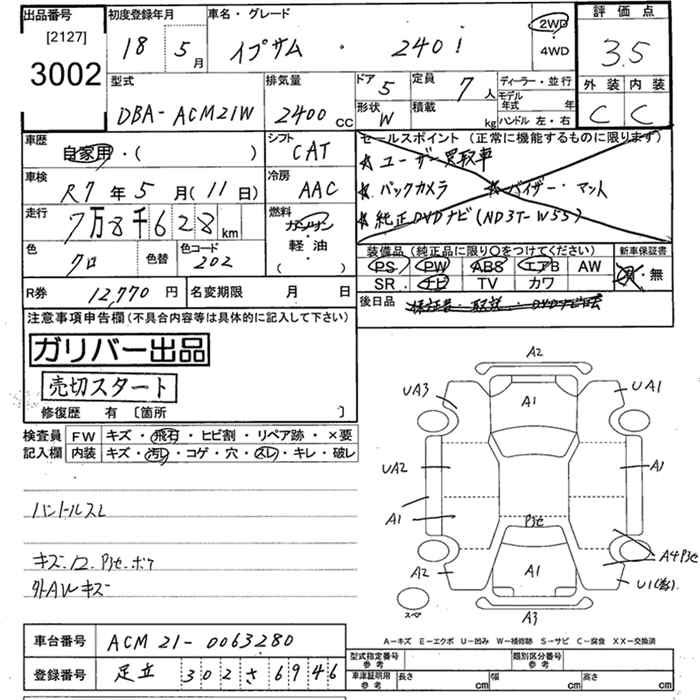 出品番号
[2127]
3002
初度登録年月
18 5月
車名・グレード
イプサム ・ 240i
2WD
4WD
評価点
3.5
外装 内装
C C
型式
DBA-ACM21W
排気量
2400cc
ドア 5
形状 W
定員 7人
積載 kg
ディーラー・並行
モデル年式 年
ハンドル 左・右
車歴
自家用・( )
シフト
CAT
車検
R7年5月(11日)
冷房
AAC
走行
7万8千628km
燃料
ガソリン
軽油
( )
色
クロ
色替
色コード
202
セールスポイント (正常に機能するものに限ります)
★ ユーザー買取車
★ バックカメラ ★ バイザー・マット
★ 純正DVDナビ(ND3T-W55)
装備品(純正品に限り○をつけてください)
新車保証書
PS PW ABS エアB AW
SR ナビ TV カワ
有・無
R券 12,770円
名変期限 月 日
後日品
保証書・取説・
注意事項申告欄(不具合内容等は具体的に記入して下さい)
ガリバー出品
売切スタート
修復歴 有 〔箇所 〕
検査員記入欄
FW キズ・飛石・ヒビ割・リペア跡・×要
内装 キズ・汚レ・コゲ・穴・スレ・キレ・破レ
ハンドルスレ
キズ・
外AWキズ
A2
UA3 A1 UA1
UA2 A1
A1
A2 A1 A4
U1
A3
スペア
A-キズ E-エクボ U-凹み W-補修跡 S-サビ C-腐食 XX-交換済
車台番号
ACM21-0063280
登録番号
足立 302 さ 6946
型式指定番号 参考
類別区分番号 参考
車体証明用 参考
長さ cm 幅 cm 高さ cm